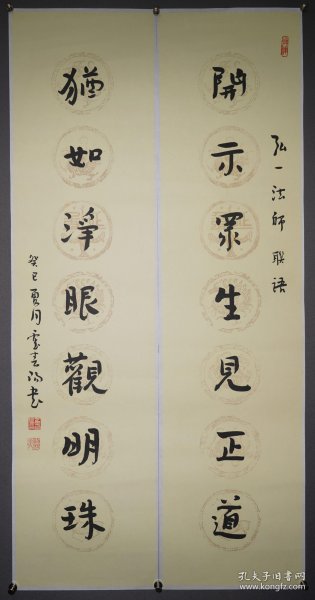 弘一法師聯語
開示眾生見正道
猶如淨眼觀明珠
癸巳夏月
书
孔夫子旧书网
www.kongfz.com